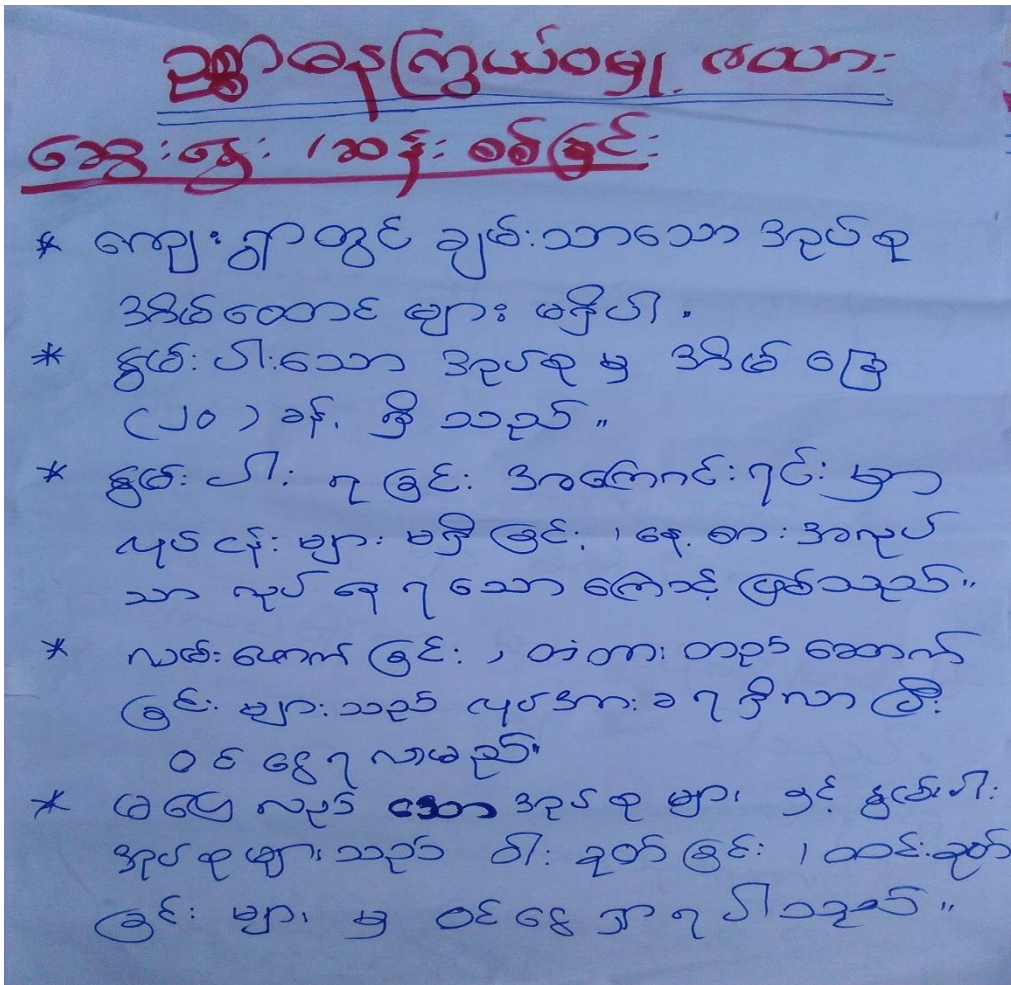 ဥစ္စာဓနကြွယ်ဝမှု ဇယား
ဆွေးနွေး၊ဆန်းစစ်ခြင်း
* ကျေးရွာတွင် ချမ်းသာသော အုပ်စု
အိမ်ထောင် များ မရှိပါ။
* နွမ်းပါးသော အုပ်စုမှ အိမ်ခြေ
(၂၀) ခန့် ရှိသည်။
* နွမ်းပါး ရခြင်း အကြောင်းရင်းမှာ
လုပ်ငန်းများ မရှိခြင်း၊ နေ့စားအလုပ်
သာ လုပ်နေရသောကြောင့် ဖြစ်သည်။
* လမ်းဖောက်ခြင်း ၊ တံတား တည်ဆောက်
ခြင်းများသည် လုပ်အားခ ရရှိလာပြီး
ဝင်ငွေရလာမည်။
* မပြေလည်သော အုပ်စုများ နှင့် နွမ်းပါး
အုပ်စုများသည် ဝါးခုတ်ခြင်း ၊ ထင်းခုတ်
ခြင်းများမှ ဝင်ငွေရှာရပါသည်။